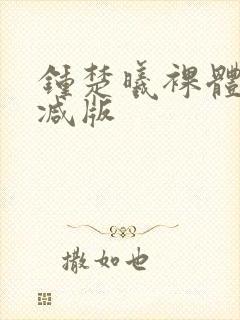 鍾楚曦裸體
減版
撒如也